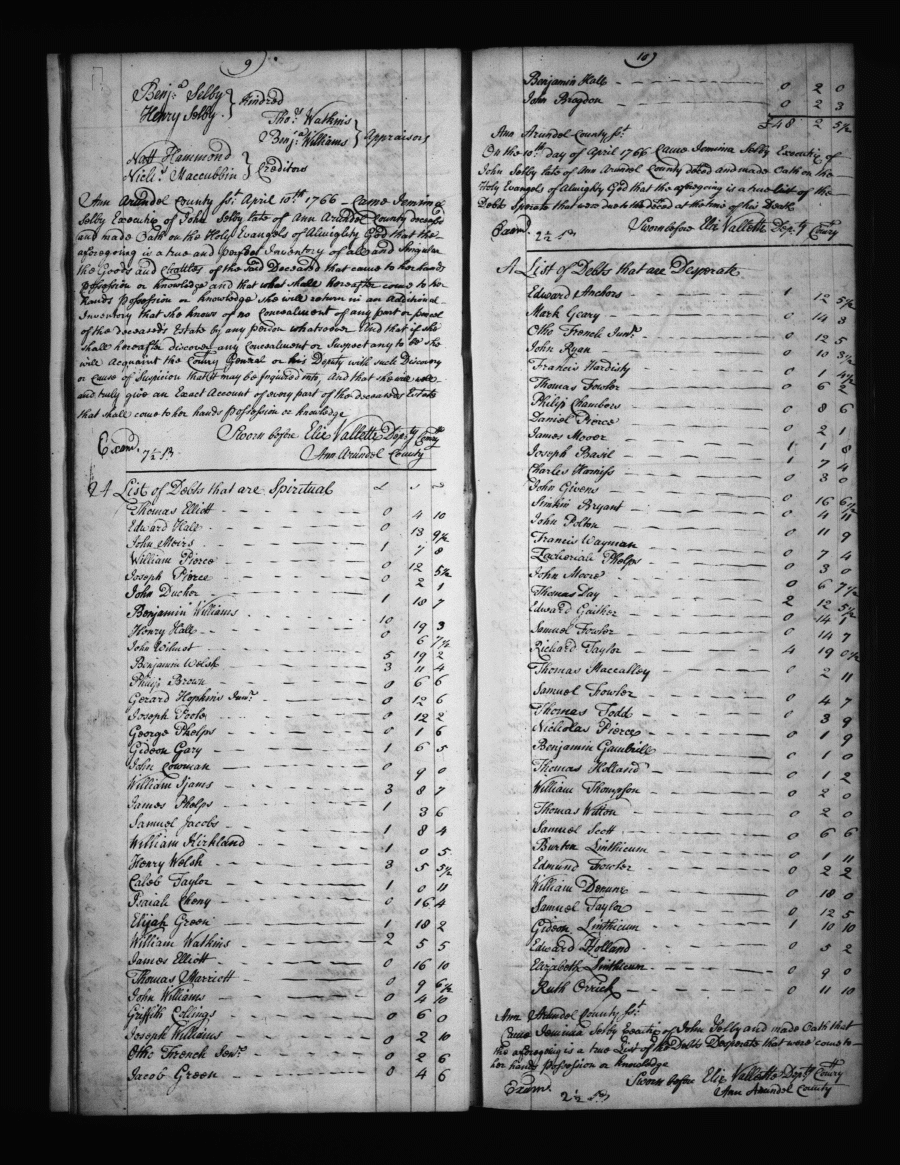 9
Benjª Selby } Kindred
Henry Selby
Thoˢ Watkins } Appraisors
Benjª Williams
Natt Hammond } Creditors
Nichˢ Maccubbin
Ann Arundel County Sct April 10th 1766 - Came Jemima
Selby Executrix of John Selby late of Ann Arundel County deceased
and made Oath on the Holy Evangels of Almighty God that the
aforegoing is a true and perfect Inventory of all and Singular
the Goods and Chattles of the said Deceased that came to her hands
possession or knowledge and that what shall hereafter come to her
hands possession or knowledge she will return in an Additional
Inventory that she knows of no Concealment of any part or parcel
of the deceaseds Estate by any person whatsoever And that if she
shall hereafter discover any Concealment or Suspect any to be she
will Acquaint the Comry General or his Deputy with such Discovery
or cause of Suspicion that it may be Inquired into, And that she will well
and truly give an Exact Account of every part of the deceaseds Estate
that shall come to her hands possession or knowledge
Sworn before Elie Vallette Depty Comry
Ann Arundel County
Examd.
7½
A List of Debts that are Spiritual £ s d
Thomas Elliott 0 4 10
Edward Hall 0 13 9½
John Meirs 1 7 8
William Pierce 0 12 5½
Joseph Pierce 0 2 1
John Ducker 1 18 7
Benjamin Williams 10 19 3
Henry Hall 0 6 7½
John Wilmot 5 19 2
Benjamin Welsh 3 11 4
Philip Brown 0 6 6
Gerard Hopkins Junʳ 0 12 6
Joseph Poole 0 12 2
George Phelps 0 1 6
Gideon Gary 1 6 5
John Cowman 0 9 0
William Ijams 3 8 7
James Phelps 1 3 6
Samuel Jacobs 1 8 4
William Kirkland 1 0 5
Henry Welsh 3 5 5½
Caleb Taylor 1 0 11
Isaiah Cheny 0 16 4
Elijah Green 1 18 2
William Watkins 2 5 5
James Elliott 0 16 10
Thomas Marriott 0 9 6½
John Williams 0 4 10
Griffith Collings 0 6 0
Joseph Williams 0 2 10
Otho French Senʳ 0 2 6
Jacob Green 0 4 6
10
Benjamin Hall 0 2 0
John Brogdon 0 2 3
£48 2 5½
Ann Arundel County Sct
On the 10th day of April 1766 Came Jemima Selby Executrix of
John Selby late of Ann Arundel County deced and made Oath on the
Holy Evangels of Almighty God that the aforegoing is a true list of the
Debts Sperate that were due to the deced at the time of his Death
Sworn before Elie Vallette Depty Comry
Examd. 2½
A List of Debts that are Desperate
Edward Anchors 1 12 5½
Mark Geary 0 14 3
Otho French Junʳ 0 12 5
John Ryan 0 10 3½
Francis Hardisty 0 1 4½
Thomas Fowler 0 6 2
Philip Chambers 0 8 6
Daniel Pierce 0 2 1
James Moor 1 1 8
Joseph Basil 1 7 4
Charles Harniss 0 3 0
John Givens
Simkin Bryant 0 16 6½
John Polton 0 4 11
Francis Wayman 0 11 9
Zachariah Phelps 0 7 4
John Moore 0 3 0
Thomas Day 0 6 7½
Edward Gaither 2 12 5½
Samuel Fowler 0 14 1
Richard Taylor 0 14 7
Thomas Maccalley 4 19 0½
Samuel Fowler 0 2 11
Thomas Todd 0 4 7
Nicholas Pierce 0 3 9
Benjamin Gambrill 0 1 9
Thomas Holland 0 1 0
William Thompson 0 1 2
Thomas Wilton 0 2 0
Samuel Scott 0 2 0
Burton Linthicum 0 6 6
Edmund Fowler 0 1 11
William Denune 0 2 2
Samuel Taylor 0 18 0
Gideon Linthicum 0 12 5
Edward Holland 1 10 10
Elizabeth Linthicum 0 3 2
Ruth Orrick 0 9 0
0 11 10
Ann Arundel County Sct
Came Jemima Selby Executrix of John Selby and made Oath that
the aforegoing is a true List of the Debts Desperate that were come to
her hands Possession or knowledge
Sworn before Elie Vallette Depty Comry
Ann Arundel County
Examd.
2½